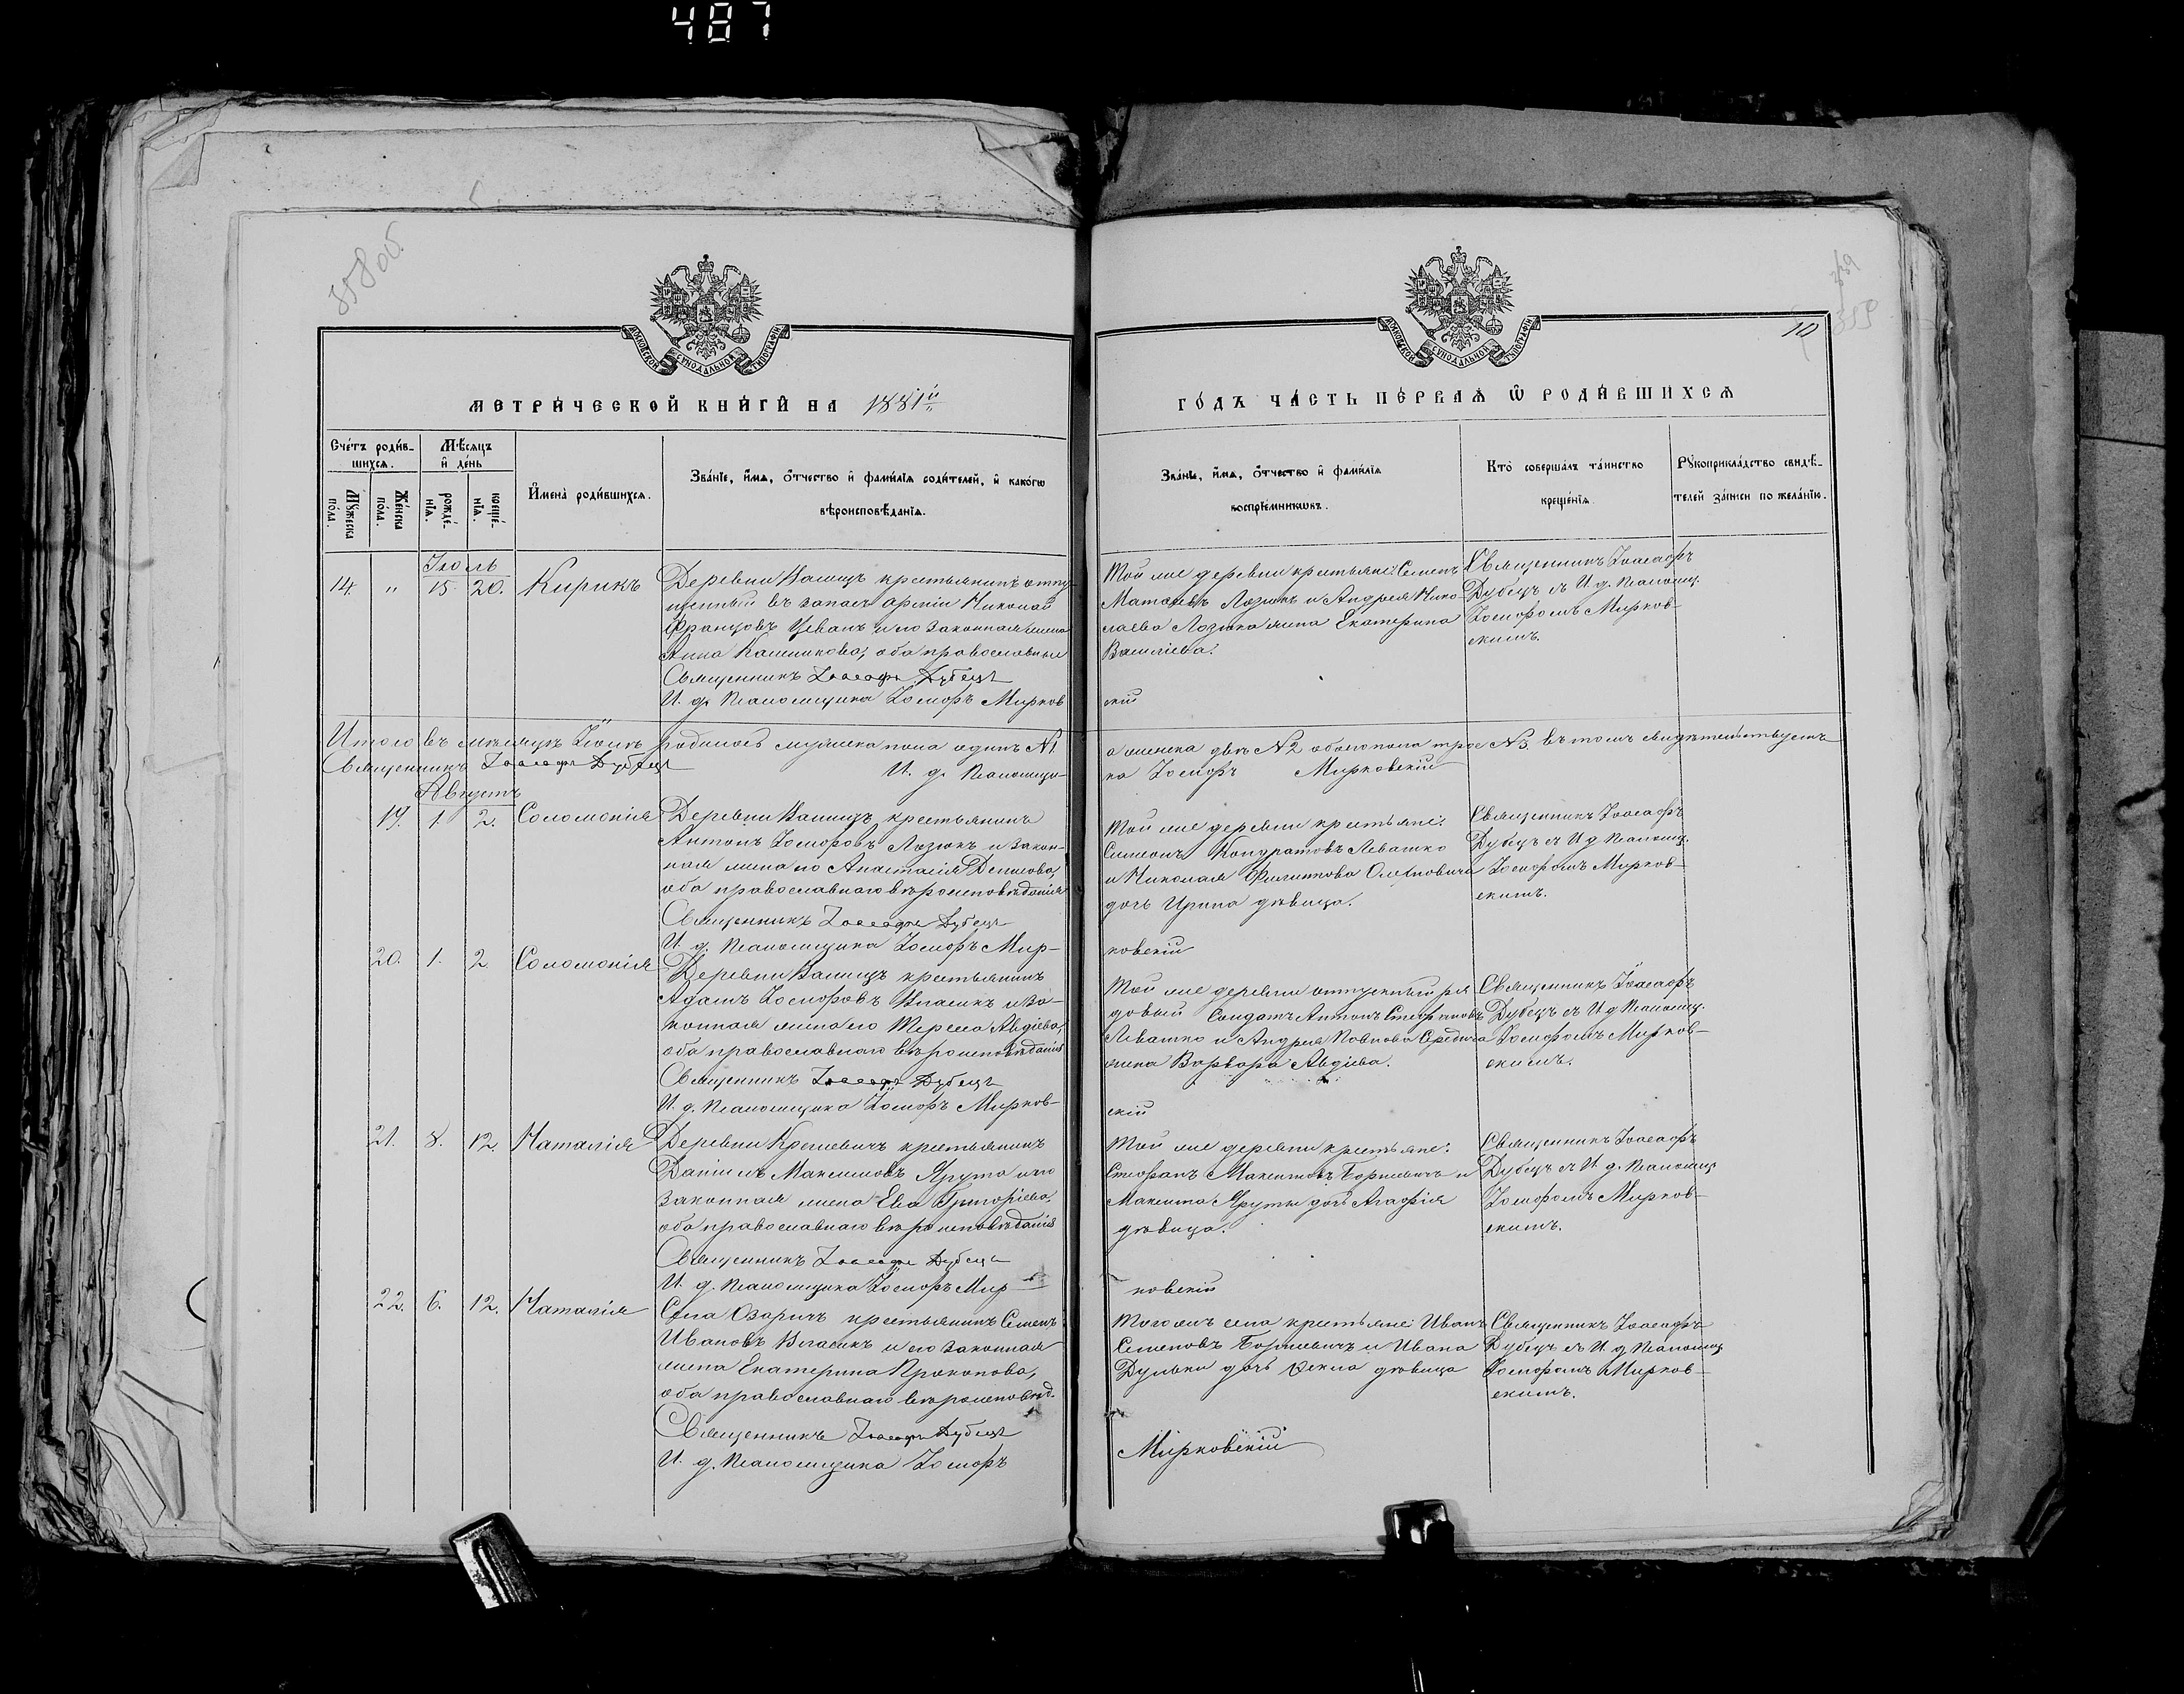 487
358 об
МОСКОВСКОЙ СѴНОДАЛЬНОЙ ТИПОГРАФІИ
МЕТРИ́ЧЕСКОЙ КНИ́ГИ НА 1881й
Сче́тъ роди́в-
шихся.
Мѣ́сяцъ
и де́нь
Мꙋ́жеска
по́ла.
Же́нска
по́ла.
рожде́-
нїя.
креще́-
нїя.
И҆мена̀ роди́вшихся.
Зва́нїе, и҆́мя, ѻ҆́тчество и҆ фами́лїя роди́телей, и҆ како́гѡ
вѣроисповѣ́данїя.
Іюль
14. " 15. 20. Кирикъ
Деревни Валищъ крестьянинъ отпу-
щенный въ запасъ арміи Николай
Францовъ Цеванъ и его законная жена
Анна Калиникова, оба православные
Священникъ Іоасафъ Дубецъ
И. д. Псаломщика Іосифъ Мирков
Итого въ мѣсяцѣ Іюлѣ родилось мужеска пола одинъ №1
Священникъ Іоасафъ Дубецъ И. д. Псаломщи-
Августъ
19. 1. 2. Соломонія
Деревни Валищъ крестьянинъ
Антонъ Іосифовъ Лозюкъ и закон-
ная жена его Анастасія Денисова,
оба православнаго вѣроисповѣданія
Священникъ Іоасафъ Дубецъ
И. д. Псаломщика Іосифъ Мир-
20. 1. 2 Соломонія
Деревни Валищъ крестьянинъ
Адамъ Іосифовъ Власикъ и за-
конная жена его Тереса Авдіева,
оба православнаго вѣроисповѣданія
Священникъ Іоасафъ Дубецъ
И. д. Псаломщика Іосифъ Мирков-
21. 8. 12. Наталія
Деревни Кошевичъ крестьянинъ
Даніилъ Максимовъ Ярута и его
законная жена Ева Григоріева,
оба православнаго вѣроисповѣданія
Священникъ Іоасафъ Дубецъ
И. д. Псаломщика Іосифъ Мир-
22. 6. 12. Наталія
Села Озаричъ крестьянинъ Семенъ
Ивановъ Власикъ и его законная
жена Екатерина Прокопова,
оба православнаго вѣроисповѣд.
Священникъ Іоасафъ Дубецъ
И. д. Псаломщика Іосифъ
359
10
МОСКОВСКОЙ СѴНОДАЛЬНОЙ ТИПОГРАФІИ
ГО́ДЪ ЧА́СТЬ ПЕ́РВАЯ Ѡ҆ РОДИ́ВШИХСЯ
Зва́нїе, и҆́мя, ѻ҆́тчество и҆ фами́лїя
воспрїе́мникѡвъ.
Кто̀ соверша́лъ та́инство
креще́нїя.
Рꙋкоприкла́дство свидѣ́-
телей за́писи по жела́нїю.
Той же деревни крестьяне: Семенъ
Матвѣевъ Лозюкъ и Андрея Нико-
лаева Лозюка жена Екатерина
Васильева.
скій
Священникъ Іоасафъ
Дубецъ съ И. д. Псаломщ.
Іосифомъ Мирков-
скимъ.
а женска двѣ №2 обоего пола трое №3. въ томъ свидѣтельствуетъ
ка Іосифъ Мирковскій
Той же деревни крестьяне:
Симеонъ Кондратовъ Левашко
и Николая Филиппова Олефновича
дочь Ирина дѣвица.
ковскій
Священникъ Іоасафъ
Дубецъ съ И д Псаломщ.
Іосифомъ Мирков-
скимъ.
Той же деревни отпускный ря
довый Солдатъ Антонъ Стефановъ
Левашко и Андрея Павлова Середича
жена Варвара Авдіева.
скій
Священникъ Іоасафъ
Дубецъ съ И д Псаломщ.
Іосифомъ Мирков-
скимъ.
Той же деревни крестьяне:
Стефанъ Максимовъ Борисевичъ и
Максима Яруты дочь Агафія
дѣвица.
ковскій
Священникъ Іоасафъ
Дубецъ съ И. д. Псаломщ
Іосифомъ Мирков-
скимъ.
Того жъ села крестьяне: Иванъ
Семеновъ Борисевичъ и Ивана
Дульки дочь Ѳекла дѣвица
Мирковскій
Священникъ Іоасафъ
Дубецъ съ И д Псаломщ
Іосифомъ Мирков-
скимъ.